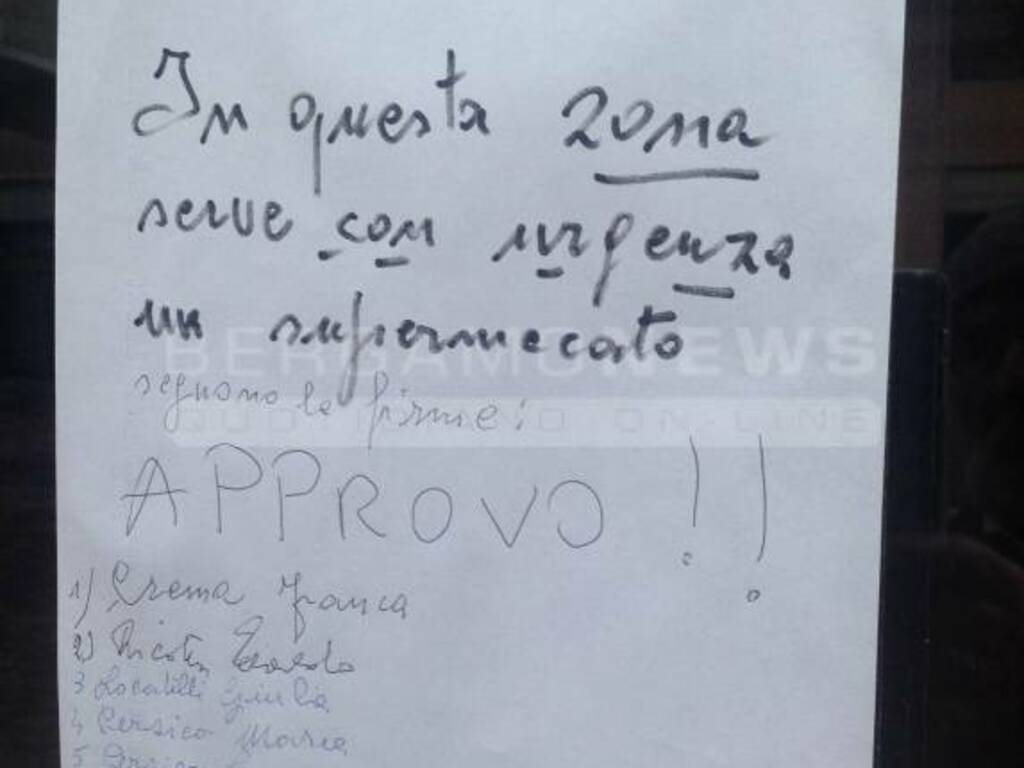 In questa zona
serve con urgenza
un supermecato
BERGAMONEWS
seguono le firme:
QUOTIDIANO ON LINE
APPROVO !!
1) Crema Franca
2)
3 Locatelli Giulia
4 Persico Maria
5